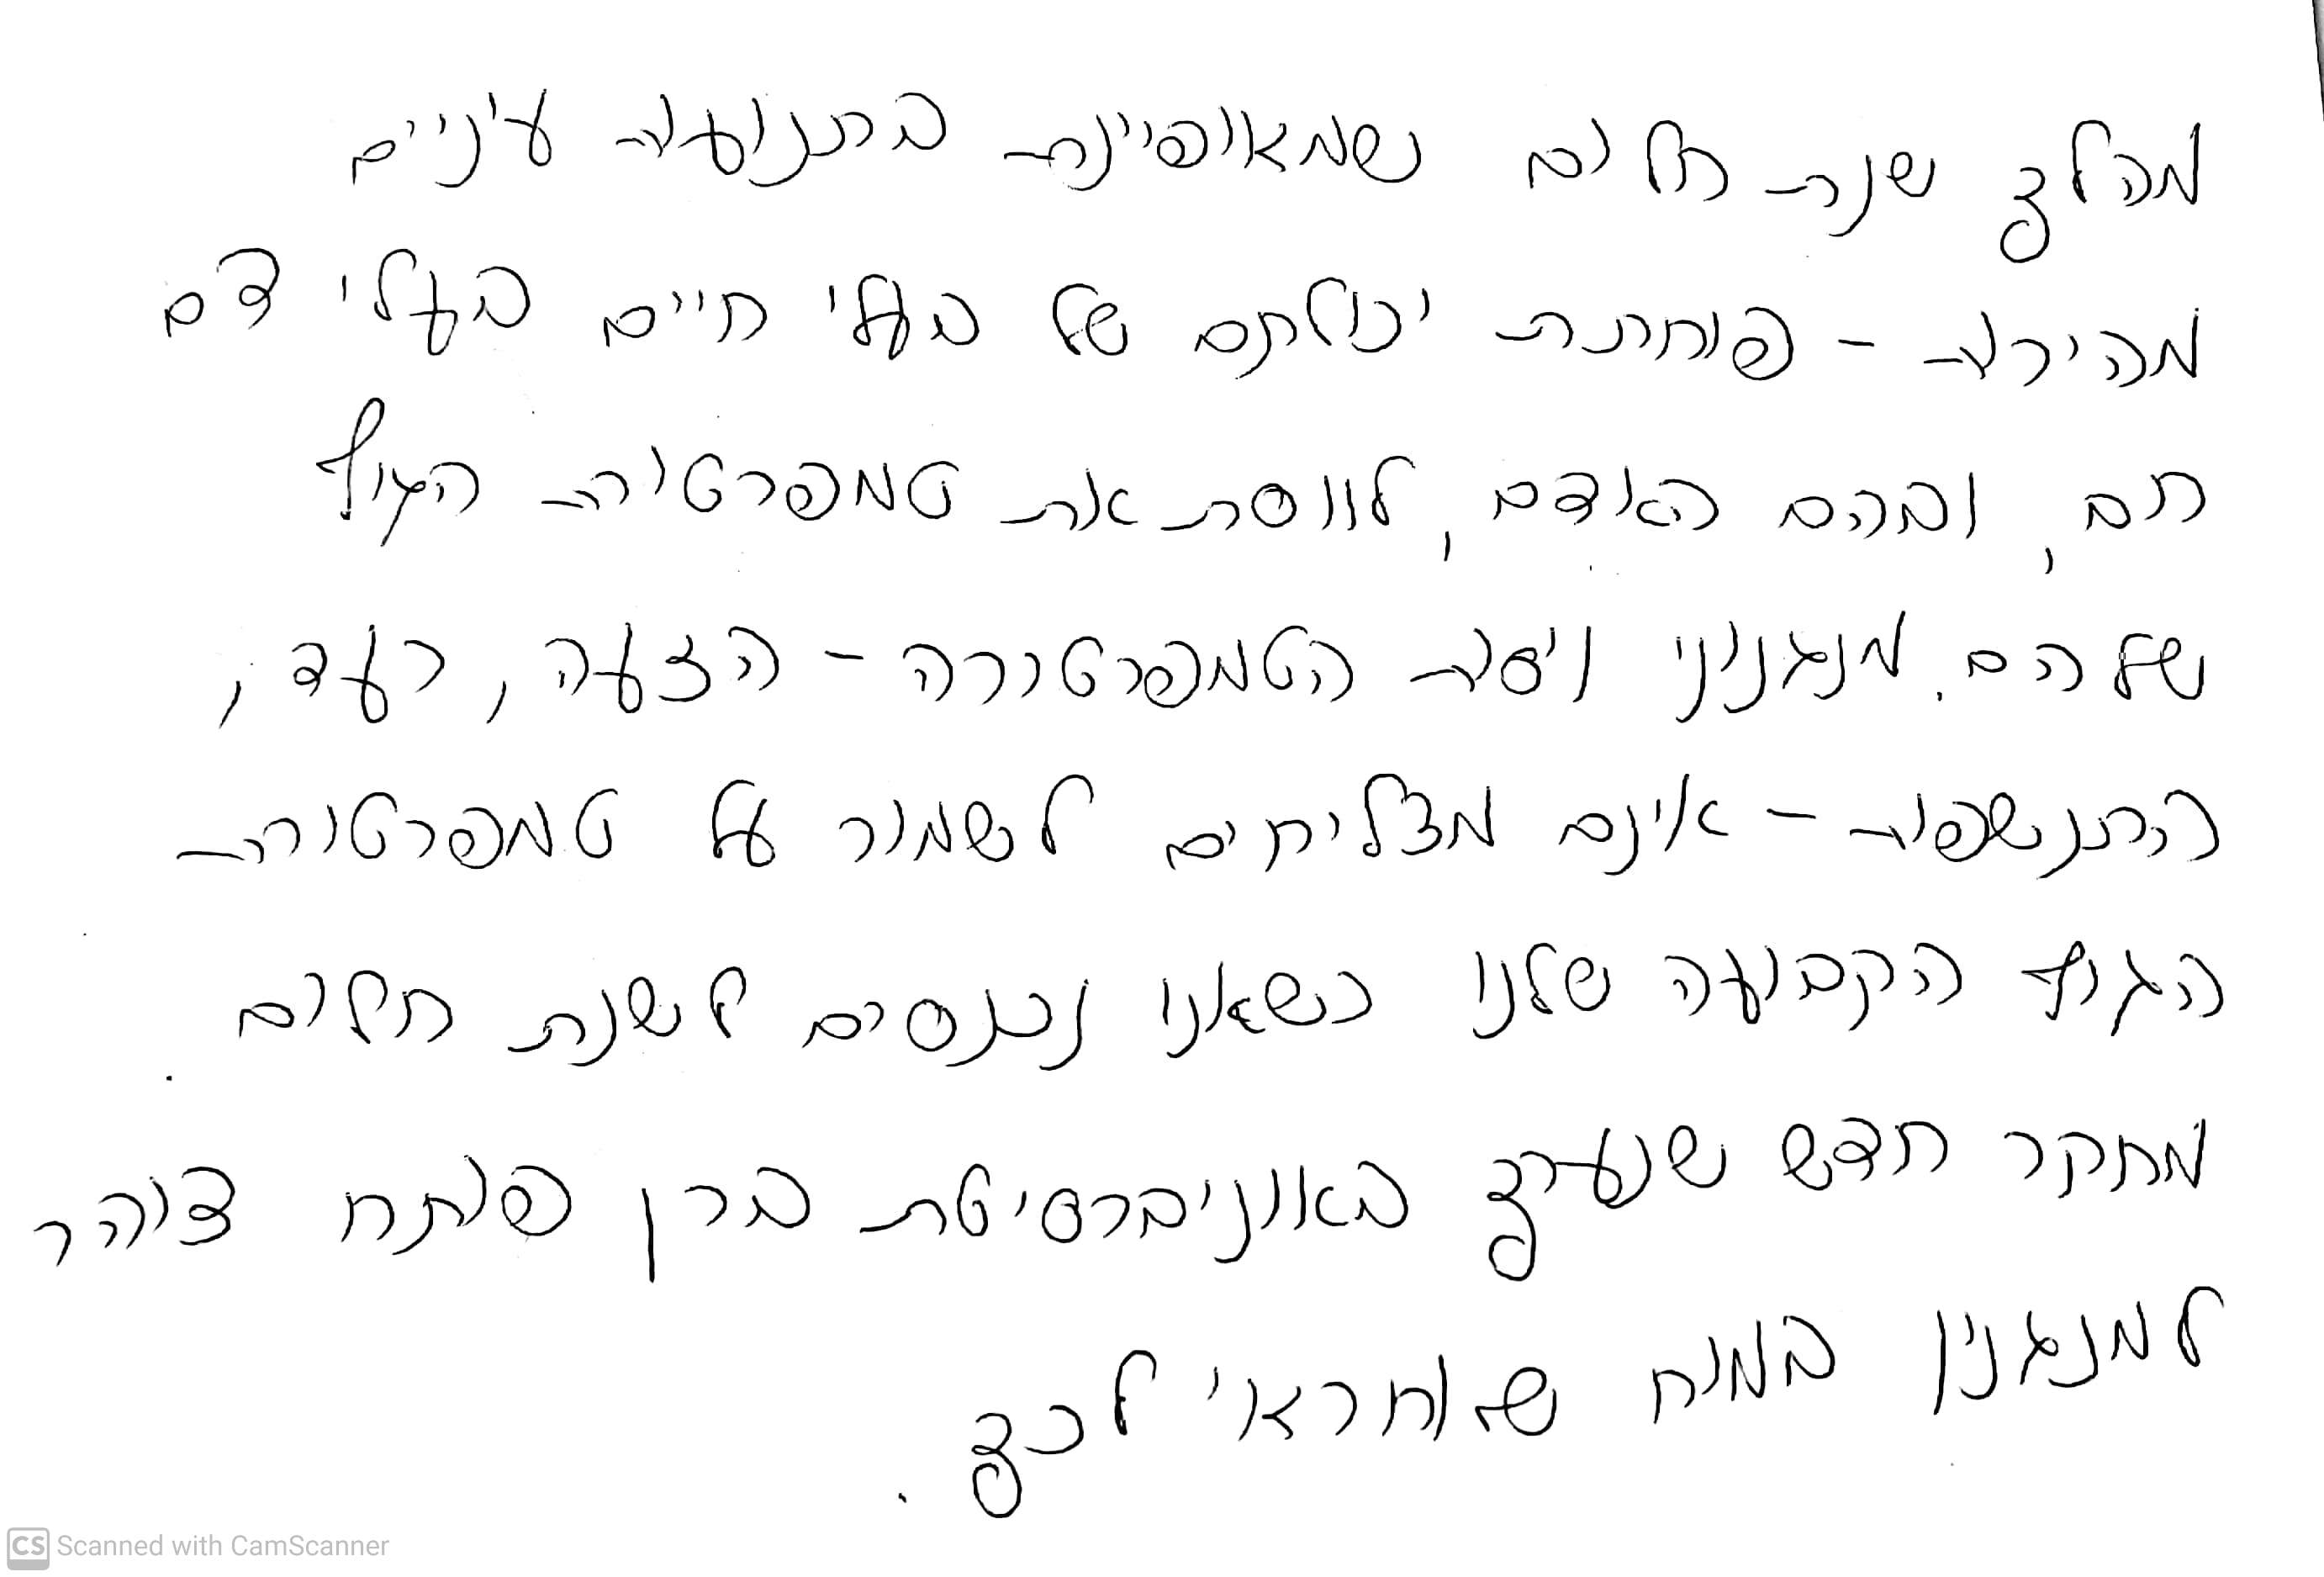 מהלך שנת חלום שמאופינת בתנועת עיניים
מהירות - פוחתת יכולתם של בעלי חיים בעלי דם
חם, ובהם האדם, לווסת את טמפרטורת הגוף
שלהם. מנגנוני ויסות הטמפרטורה - הזעה, רעד,
התנשפות - אינם מצליחים לשמור על טמפרטורת
הגוף הקבועה שלנו כשאנו נכנסים לשנת חלום.
מחקר חדש שנערך באוניברסיטת ברן פותח צוהר
למנגנון במוח שאחראי לכך.
Scanned with CamScanner